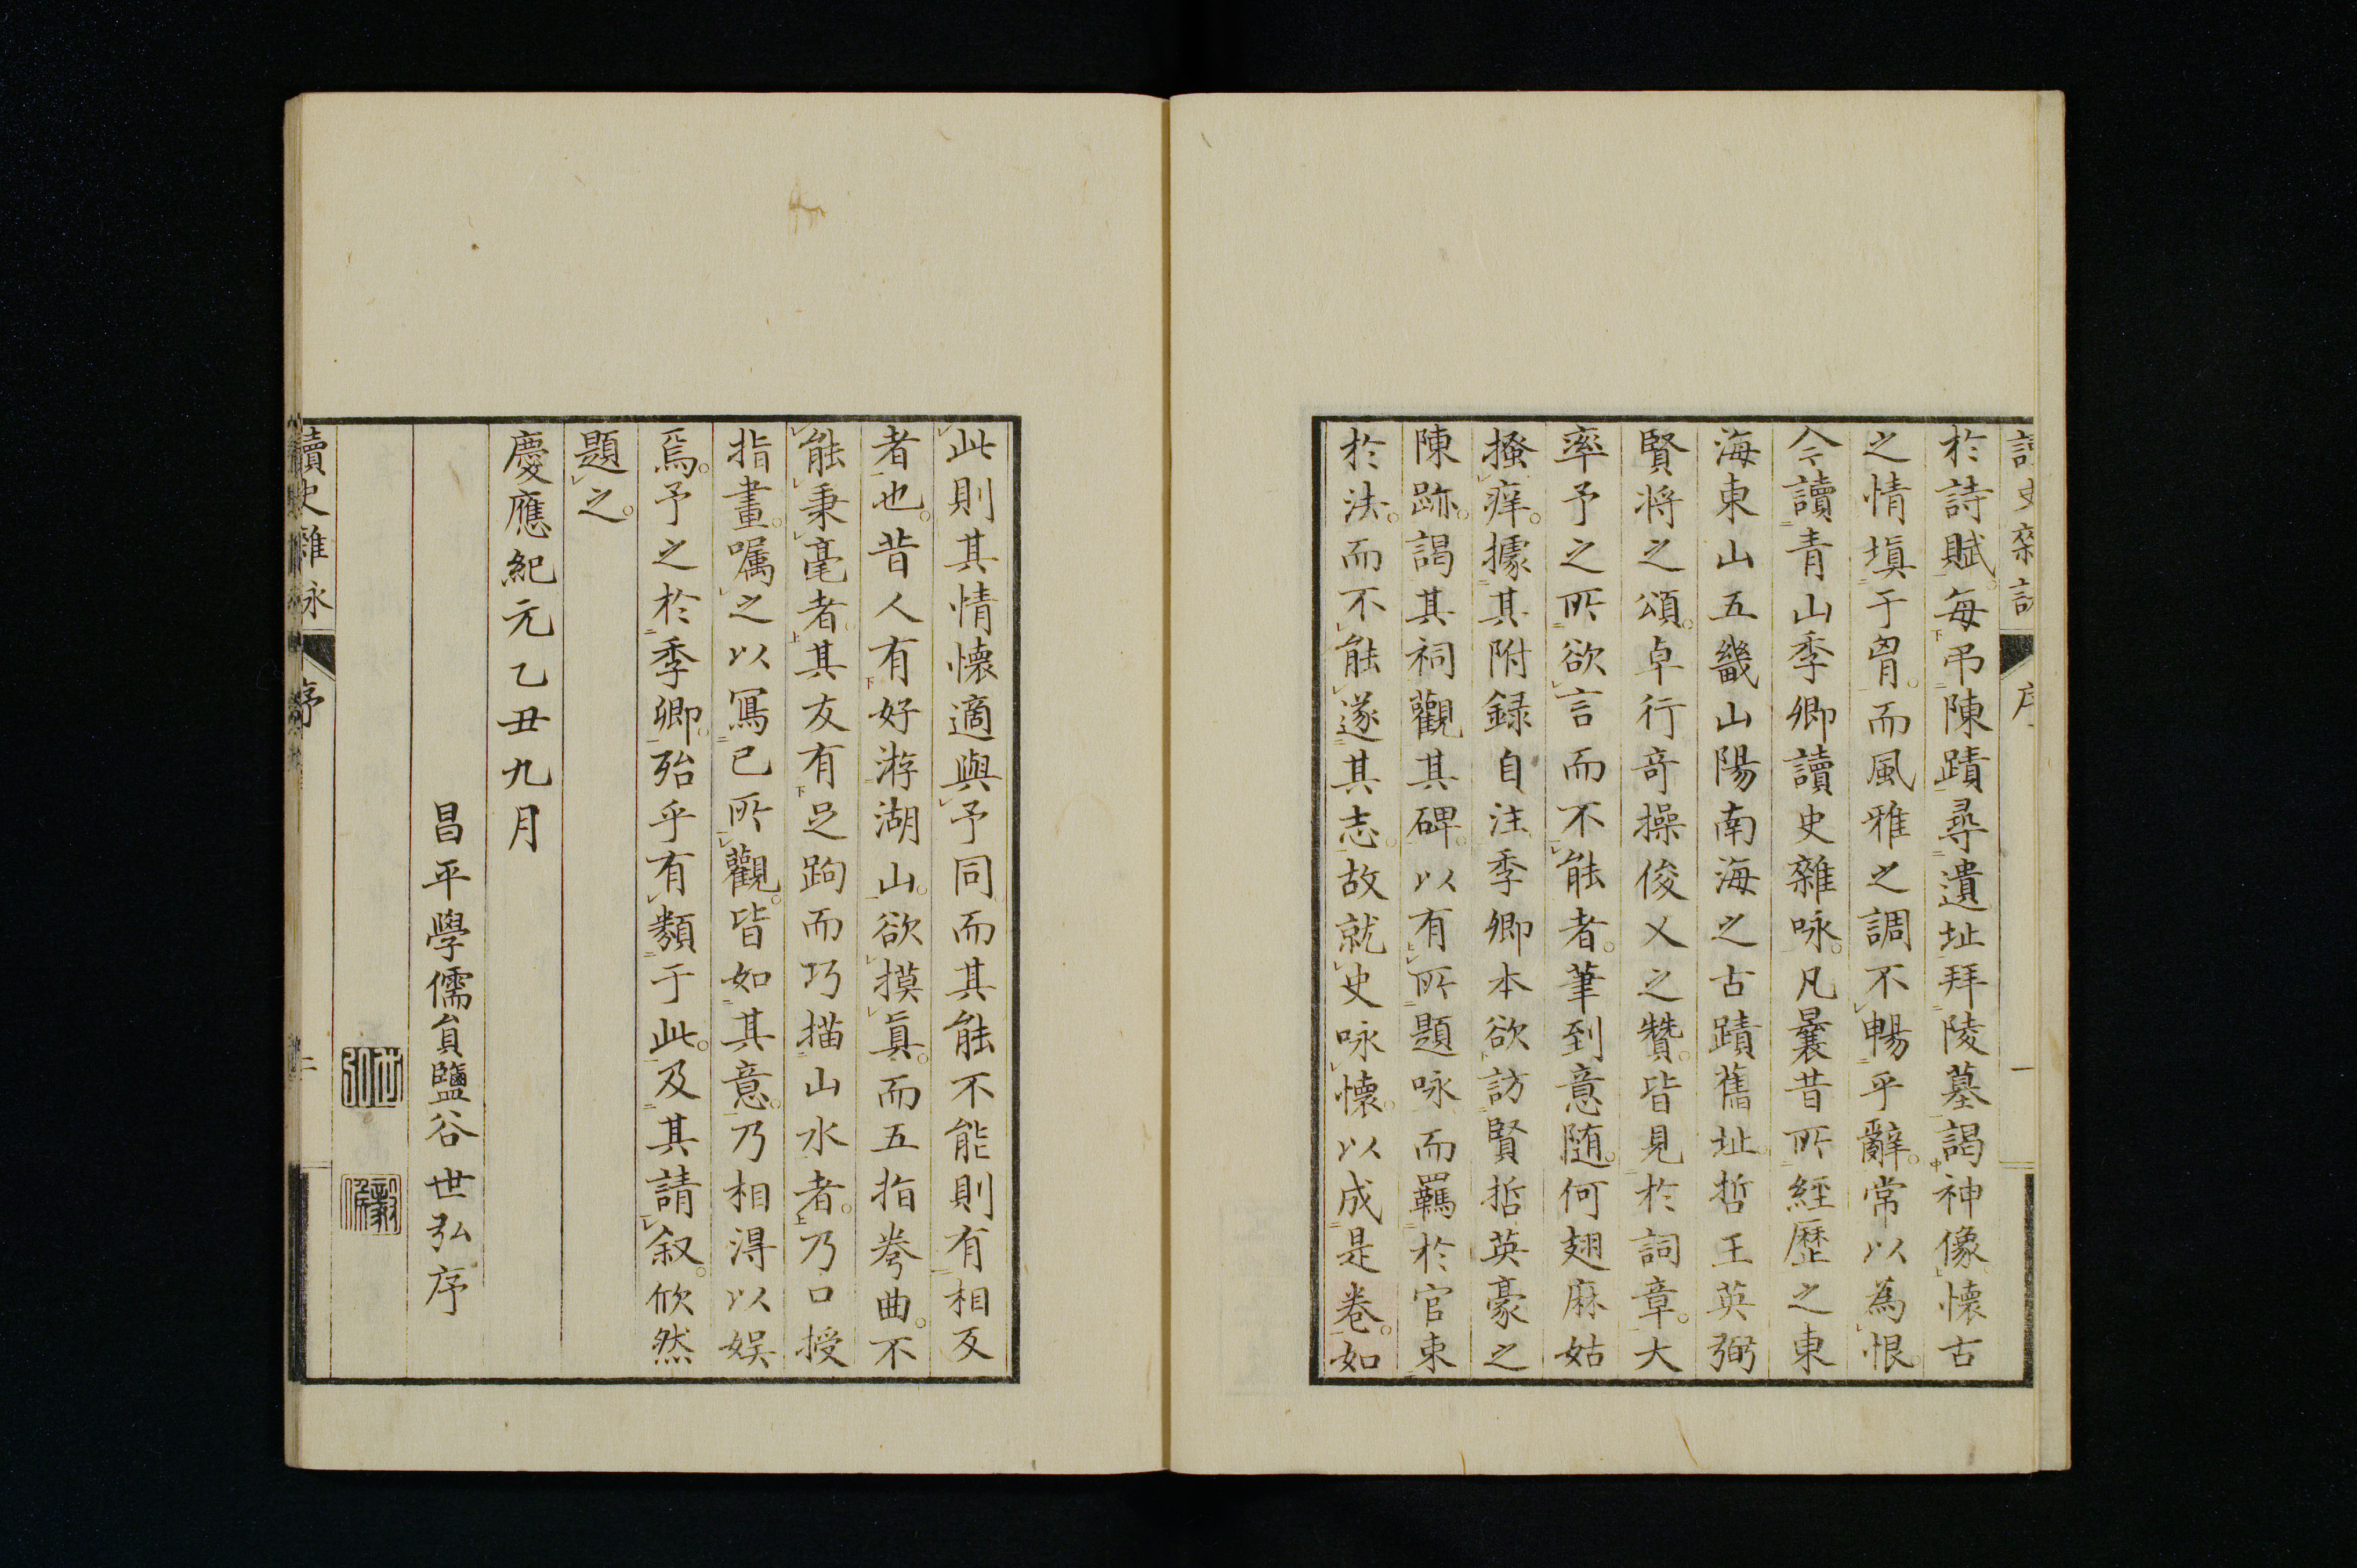 於詩賦。每弔陳蹟尋遺址拜陵墓謁神像懷古
之情塡于胷。而風雅之調不暢乎辭。常以為恨。
今讀青山季卿讀史雜咏。凡曩昔所經歷之東
海東山五畿山陽南海之古蹟舊址。哲王英弼
賢將之頌。卓行奇操俊乂之贊。皆見於詞章。大
率予之所欲言而不能者。筆到意随。何翅麻姑
搔痒。據其附録自注季卿本欲訪賢哲英豪之
陳跡。謁其祠觀其碑。以有所題咏而羈於官束
於法。而不能遂其志。故就史咏懷。以成是卷。如
此則其情懷適與予同而其能不能則有相反
者也。昔人有好游湖山。欲摸眞。而五指拳曲。不
能秉毫者。其友有足跔而巧描山水者。乃口授
指畫。嘱之以冩已所觀。皆如其意。乃相得以娱
焉。予之於季卿。殆乎有類于此。及其請叙。欣然
題之。
慶應紀元乙丑九月
昌平學儒員鹽谷世弘序
讀史雜咏 序 二